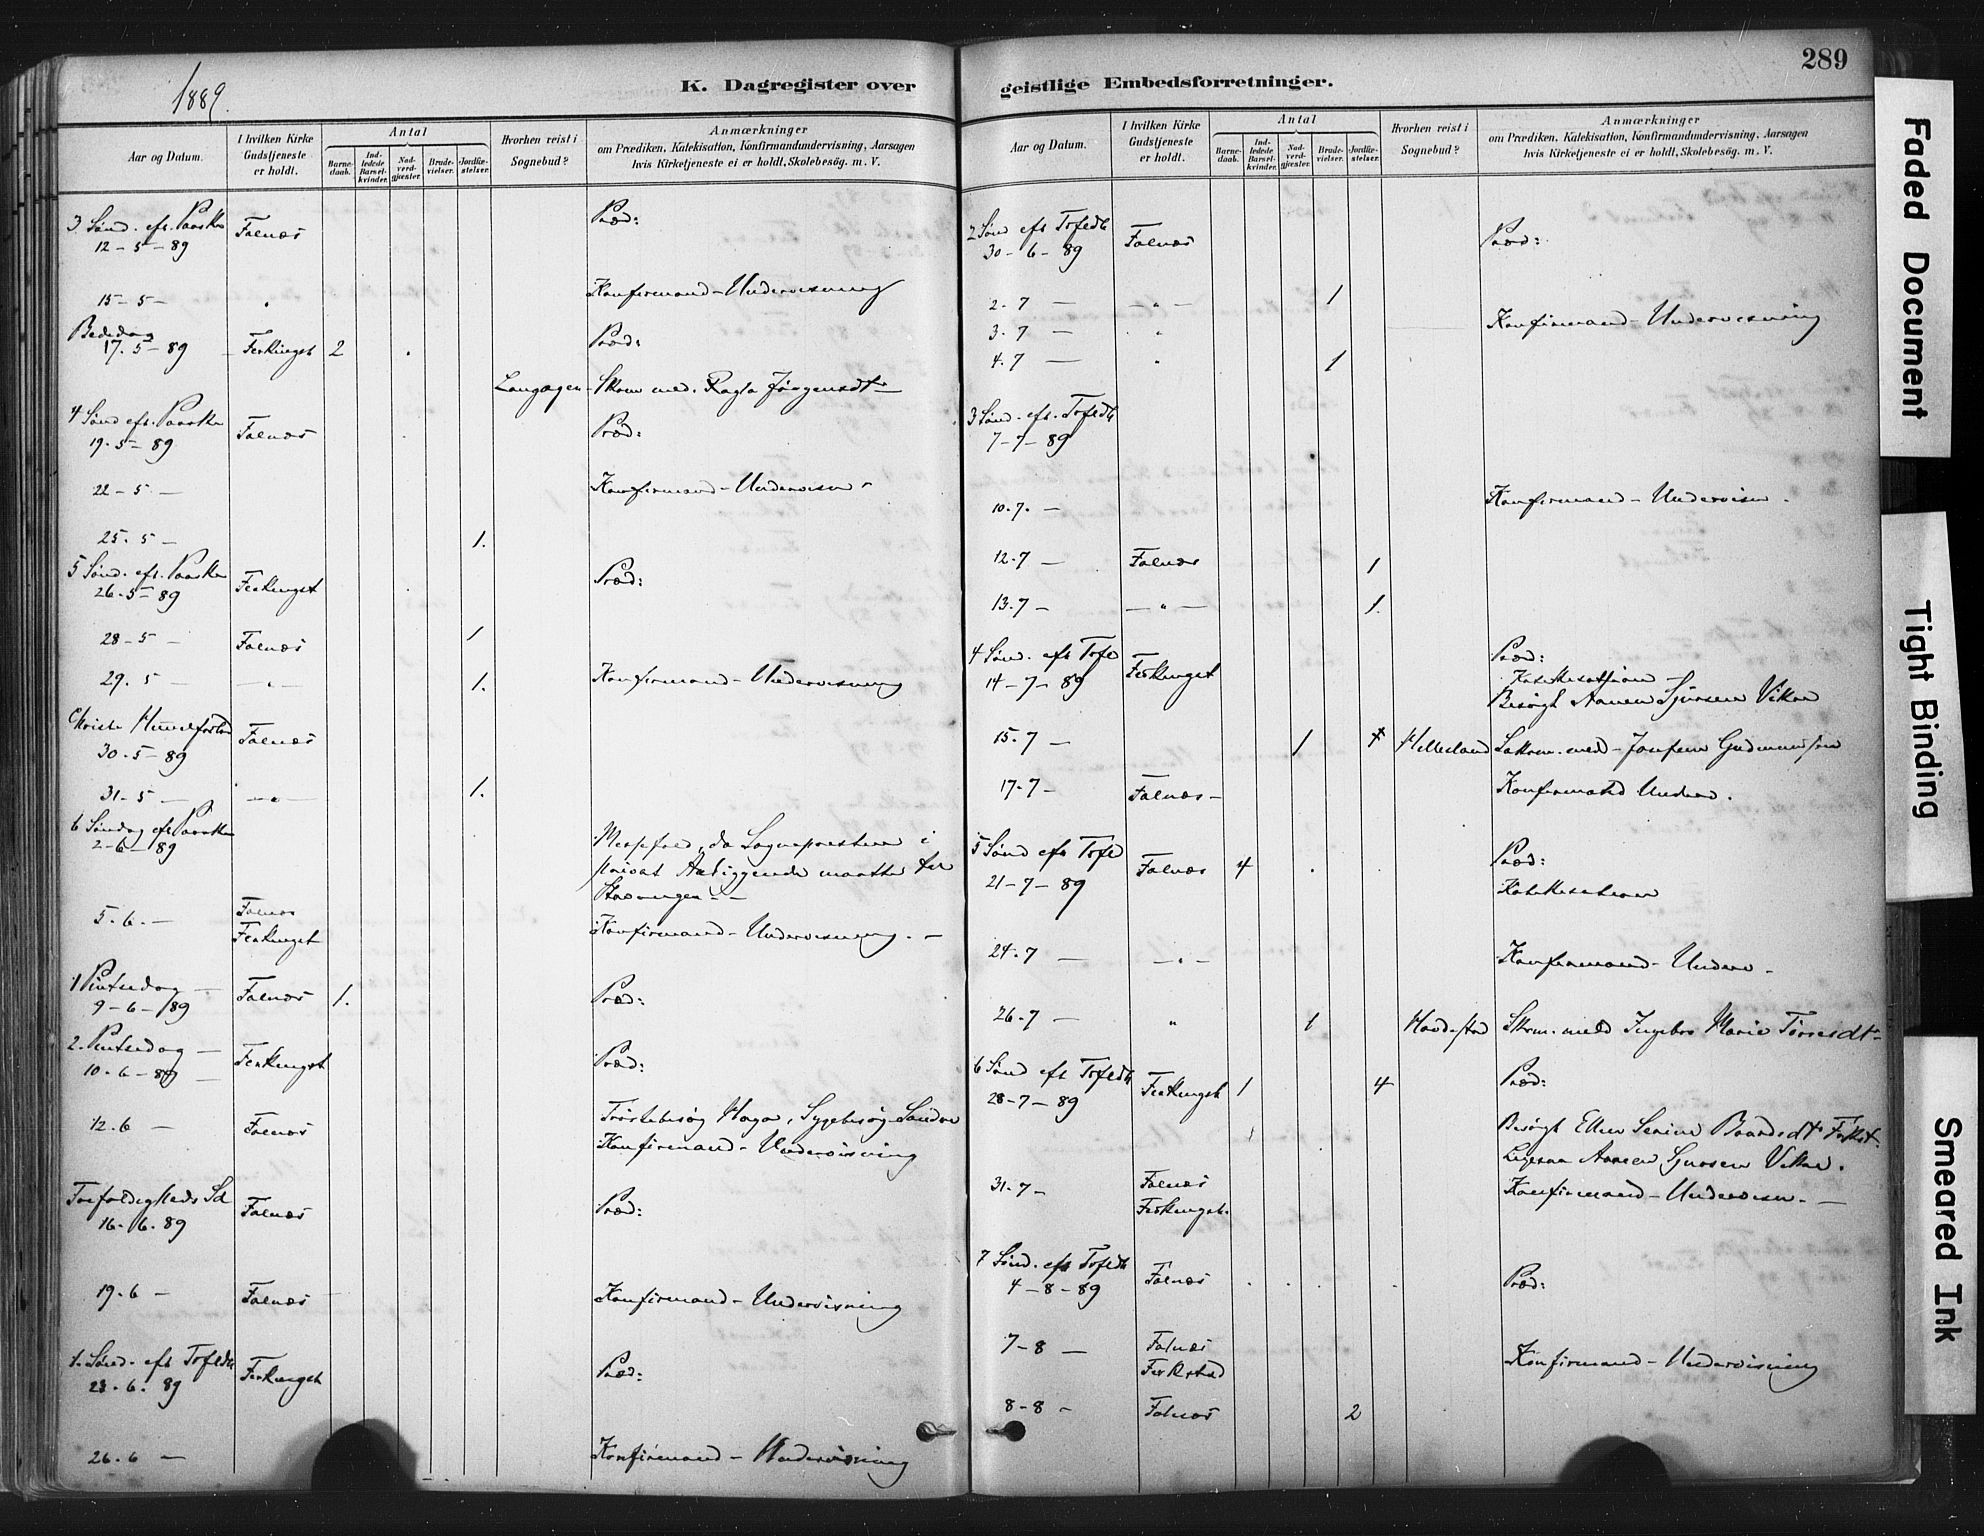 289
1889.
K. Dagregister over geistlige Embedsforretninger.
Aar og Datum.
I hvilken Kirke Gudstjeneste er holdt.
Antal
Barnedaab.
Indledede Barselkvinder.
Nadverdgjæster.
Brudevielser.
Jordfæstelser.
Hvorhen reist i Sognebud?
Anmærkninger
om Prædiken, Katekisation, Konfirmandundervisning, Aarsagen
hvis Kirketjeneste ei er holdt, Skolebesøg. m. V.
3 Sønd. eft. Paaske Falnæs Præd:
12-5-89
15-5- " Konfirmand-Undervisning
Bededag
17.5-89 - Ferkingst 2 Præd:
Langaagen - Skrm med. Jørgensdtr
4 Sønd eft. Paaske Falnæs Præd:
19.5-89
22-5- Konfirmand-Undervisn-
25.5- 1.
5 Sønd. eft. Paaske Ferkingst Præd:
26.5-89
28-5- Falnæs 1
29.5- -"- 1. Konfirmand-Undervisning
Christi Himmelfartsd Falnæs
30-5-89
31-5- -"- 1.
6 Søndag eft Paaske
2-6-89
Messefald, da Sognepresten i
privat Anliggende maatte til
Stavanger--
5.6.- Falnæs
Ferkingst Konfirmand-Undervisning.-
1 Pintsedag - Falnæs 1. Præd:
9-6-89
2. Pintsedag - Ferkingst Præd:
10-6-89
12.6- Falnæs Trøstebesøg Haga, Sygebesøg Sandve
Konfirmand-Undervisning
Trefoldigheds Sd Falnæs Præd:
16.6.89
19.6- Falnæs Konfirmand-Undervisning
1. Sønd. eft Trfldh Ferkingst Præd:
23.6.89
26.6- Konfirmand-Undervisning
Aar og Datum.
I hvilken Kirke Gudstjeneste er holdt.
Antal
Barnedaab.
Indledede Barselkvinder.
Nadverdgjæster.
Brudevielser.
Jordfæstelser.
Hvorhen reist i Sognebud?
Anmærkninger
om Prædiken, Katekisation, Konfirmandundervisning, Aarsagen
hvis Kirketjeneste ei er holdt, Skolebesøg. m. V.
2 Sønd eft Trfldh Falnæs Præd:
30-6-89
2.7- -"- 1
3.7- " Konfirmand-Undervisning
4.7- " 1
3 Sønd. eft. Trfldh
7-7-89
10.7.- Konfirmand-Undervisn.
12.7- Falnæs 1
13.7- -"- 1.
4 Sønd. eft Trfl Ferkingst Præd:
14-7-89 Katekisation-
Besøgt Aanen Sjursen Vikre
15.7- 1 Helleland Sakrm. med-
17.7- Falnæs- Konfirmand Underv.
5 Sønd eft Trfl Falnæs 4 Præd:
21-7-89 Katekisation
24.7- -"- Konfirmand-Underv-
26.7- " 1 Skrm. med Ingebor Marie
6 Sønd eft Trfldh Ferkingst 1 4 Præd:
28-7-89
Besøgt Ellen Serine Baardsdtr
Ligesaa Aanen Sjursen Vikre.
31.7- Falnæs Konfirmand-Undervisn.-
Ferkingst.
7 Sønd. eft Trfldh Falnæs Præd:
4-8-89
7-8- Falnæs Konfirmand-Undervisning
Ferkstad
8-8- Falnæs 2
Faded Document
Tight Binding
Smeared Ink